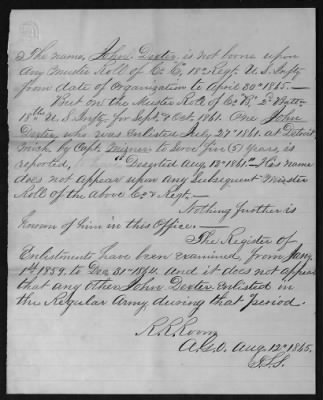 The name, John Dexter, is not borne upon
any Muster Roll of Co. C, 18th Regt. U.S. Infty
from date of Organization to April 30th 1865.—
But on the Muster Roll of Co. "B", 2d Battn.
18th U.S. Infty, for Sept. & Oct. 1861. One John
Dexter, who was Enlisted July 27th 1861. at Detroit
Mich, by Capt. to serve five (5) years, is
reported, "Deserted Aug. 12th 1861." His name
does not appear upon any Subsequent Muster
Roll of the above Co. & Regt.—
Nothing further is
known of him in this Office.—
The Register of
Enlistments have been examined, from Jany.
1st 1859. to Dec. 31st 1864, and it does not appear
that any other John Dexter enlisted in
the Regular Army during that period.
R.R. Room
A.G.O. Aug. 12th 1865.